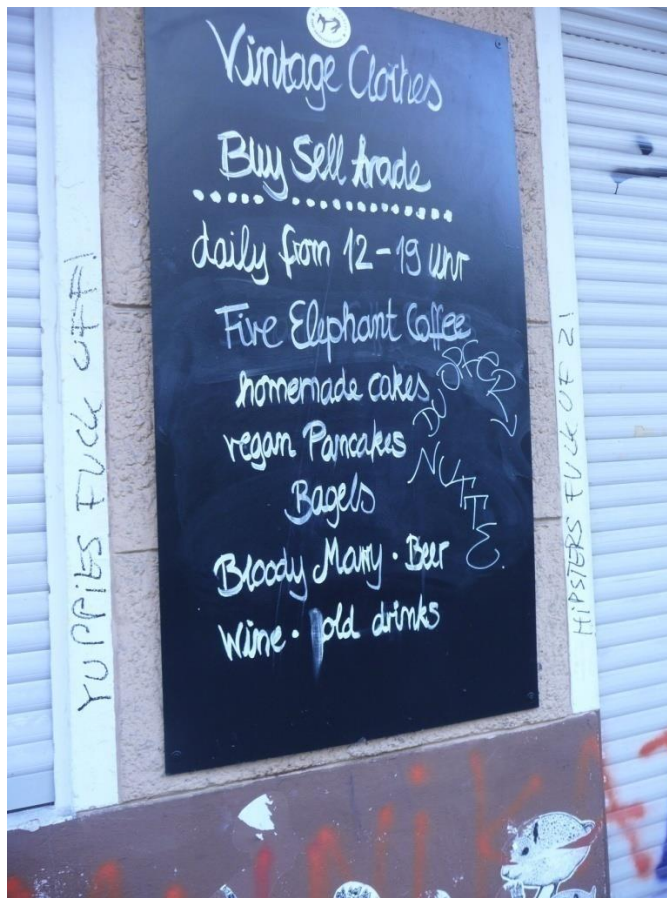 Vintage Clothes
Buy Sell trade
daily from 12-19 Uhr
Five Elephant Coffee
homemade cakes
vegan Pancakes
Bagels
Bloody Marry · Beer
Wine · old drinks
DU OPFER
NUTTE
YUPPiES FUCK OFF!
HiPSTERS FUCK OF 2!